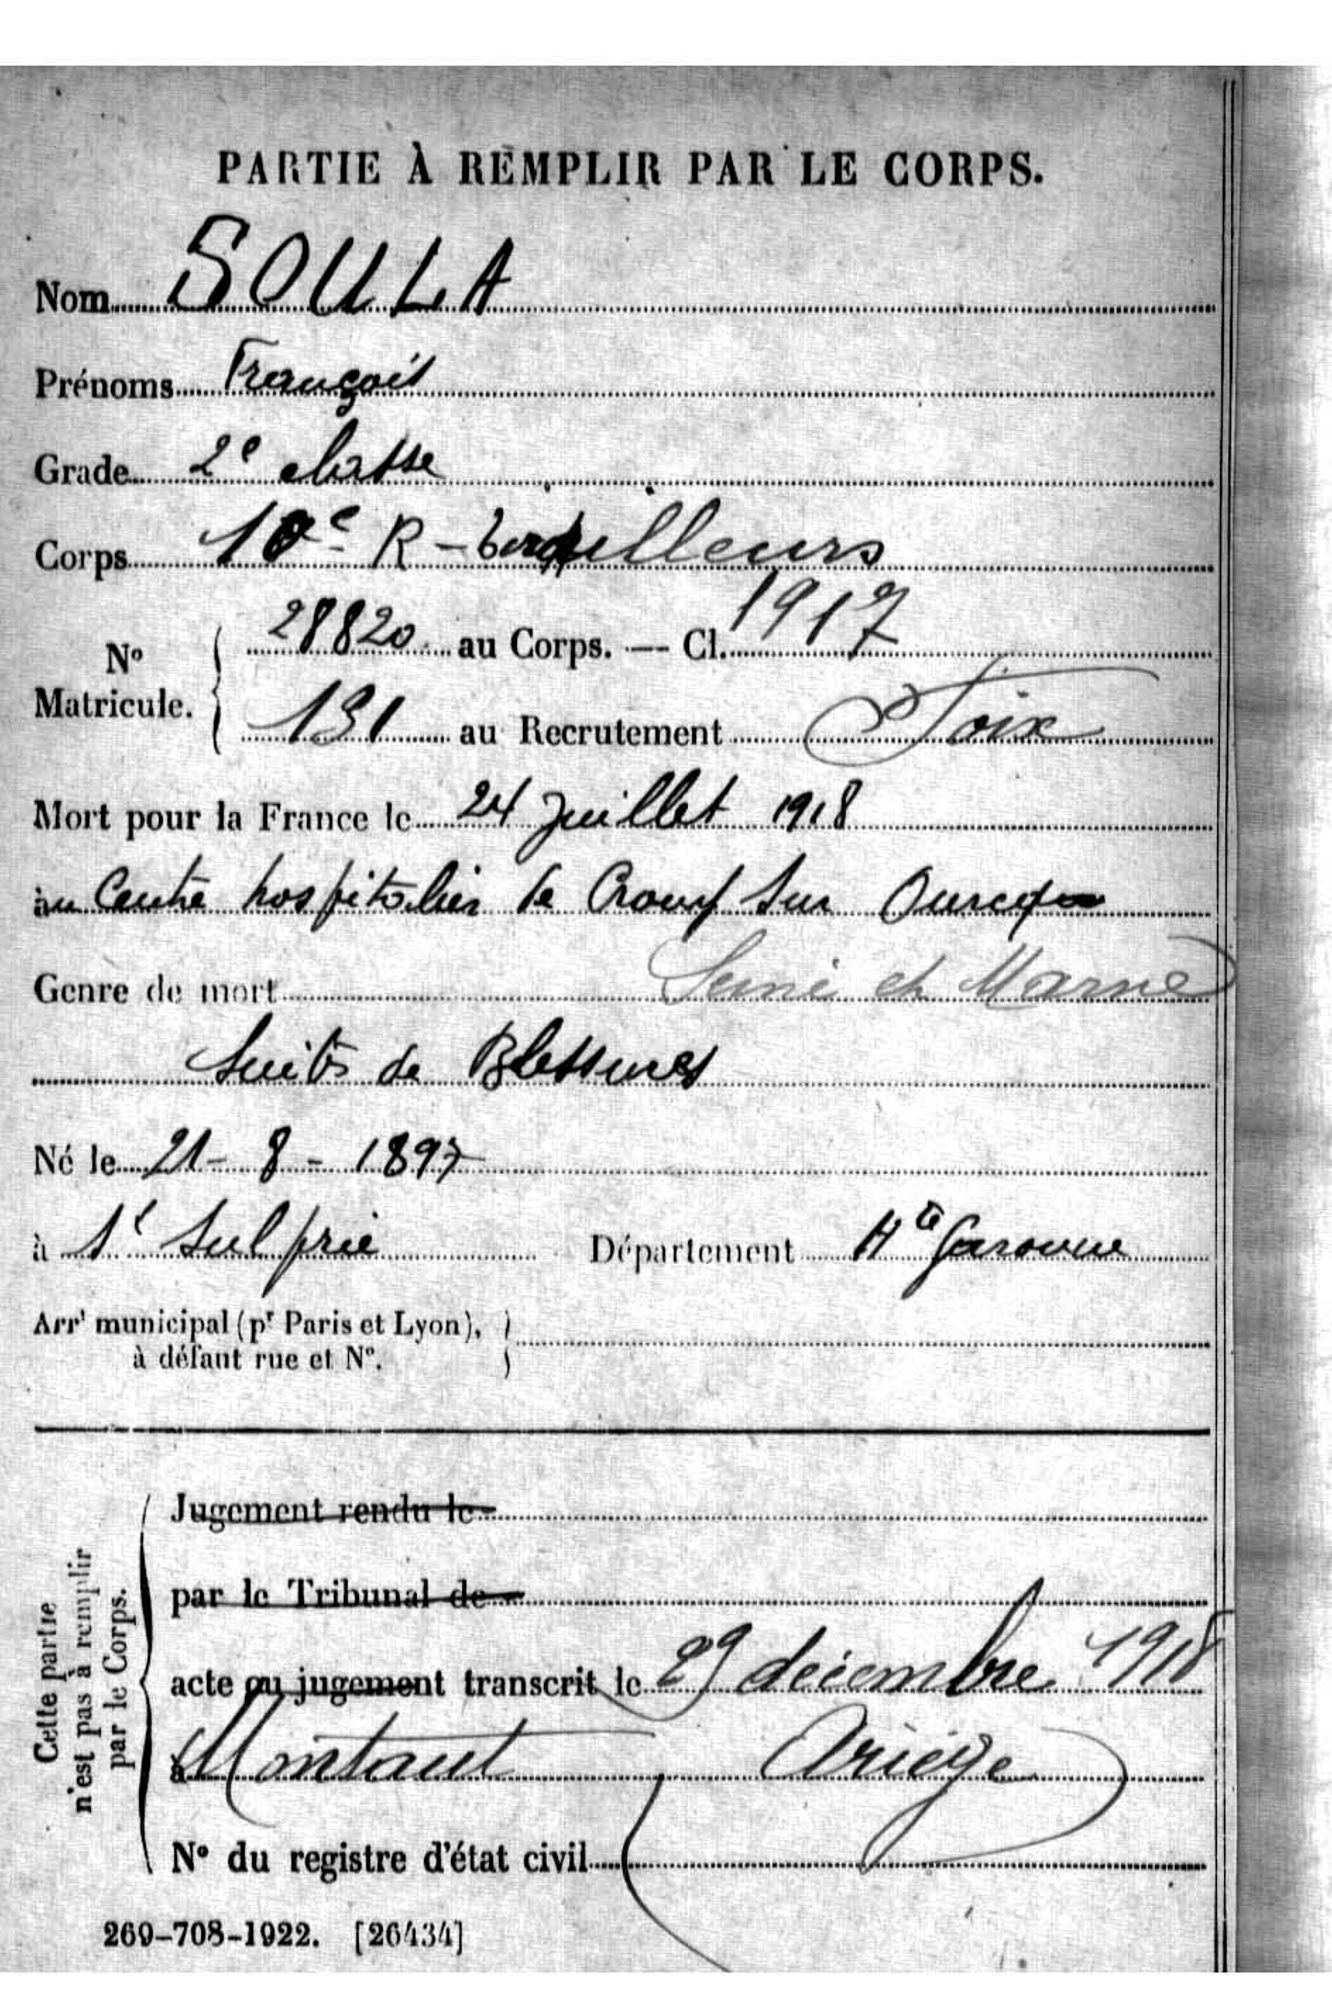 PARTIE À REMPLIR PAR LE CORPS.
Nom SOULA
Prénoms François
Grade 2e classe
Corps 10e R - tirailleurs
No Matricule. 28820 au Corps. — Cl. 1917
131 au Recrutement Foix
Mort pour la France le 24 Juillet 1918
au Centre hospitalier de Crouy sur Ourcq
Genre de mort Seine et Marne
Suites de Blessures
Né le 21 - 8 - 1897
à St Sulpice Département Hte Garonne
Arrt municipal (pr Paris et Lyon),
à défaut rue et No.
Cette partie
n'est pas à remplir
par le Corps.
Jugement rendu le
par le Tribunal de
acte ou jugement transcrit le 29 décembre 1918
à Montaut Ariège
No du registre d'état civil
269-708-1922. [26434]